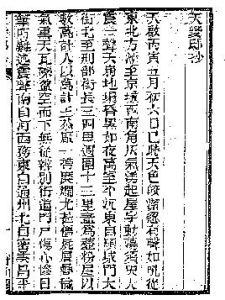 天變邸抄
天啟丙寅五月初六日巳時天色皎潔忽有聲如吼從
東北方漸至京城西南角灰氣湧起屋宇動蕩須臾大
震一聲天崩地塌昏黑如夜萬室平沉東自順城門大
街北至刑部街長三四里周圍十三里盡為齏粉屋以
數萬計人以萬計王恭廠一帶糜爛尤甚僵屍層疊穢
氣熏天瓦礫盈空而下無從辨別街道門戶傷心慘目
筆所難述震聲南自河西務東自通州北自密雲昌平